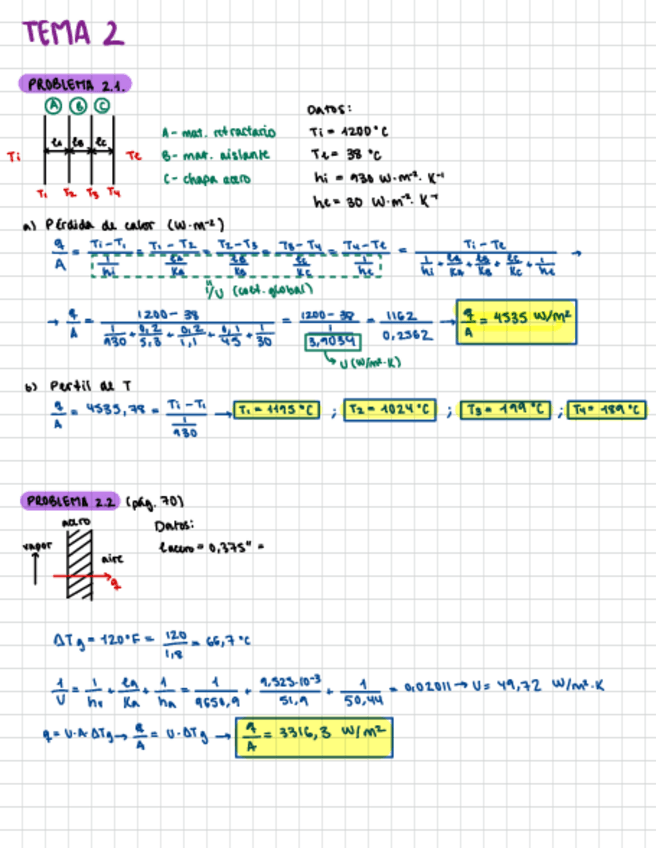 TEMA 2
PROBLEMA 2.1.
A B C
Datos:
ea eB ec
A - mat. refractario
Ti = 1200°C
Ti Te
B - mat. aislante
Te = 38 °C
C - chapa acero
hi = 930 W·m⁻²·K⁻¹
T1 T2 T3 T4
he = 30 W·m⁻²·K⁻¹
a) Pérdida de calor (W·m⁻²)
q/A = (Ti - T1)/(1/hi) = (T1 - T2)/(ea/KA) = (T2 - T3)/(eB/KB) = (T3 - T4)/(ec/Kc) = (T4 - Te)/(1/he) = (Ti - Te)/(1/hi + ea/KA + eB/KB + ec/Kc + 1/he) →
1/U (coef. global)
→ q/A = (1200 - 38)/(1/930 + 0,2/5,8 + 0,2/1,1 + 0,1/45 + 1/30) = (1200 - 38)/(1/3,9034) = 1162/0,2562 → q/A = 4535 W/m²
U (W/m²·K)
b) Perfil de T
q/A = 4535,78 = (Ti - T1)/(1/930) → T1 = 1195°C ; T2 = 1024°C ; T3 = 199°C ; T4 = 189°C
PROBLEMA 2.2 (pág. 70)
acero
Datos:
vapor
eacero = 0,375" =
aire
q
ΔTg = 120°F = 120/1,8 = 66,7°C
1/U = 1/hv + ea/Ka + 1/ha = 1/9650,9 + 9,525·10⁻³/51,9 + 1/50,44 = 0,02011 → U = 49,72 W/m²·K
q = U·A·ΔTg → q/A = U·ΔTg → q/A = 3316,3 W/m²